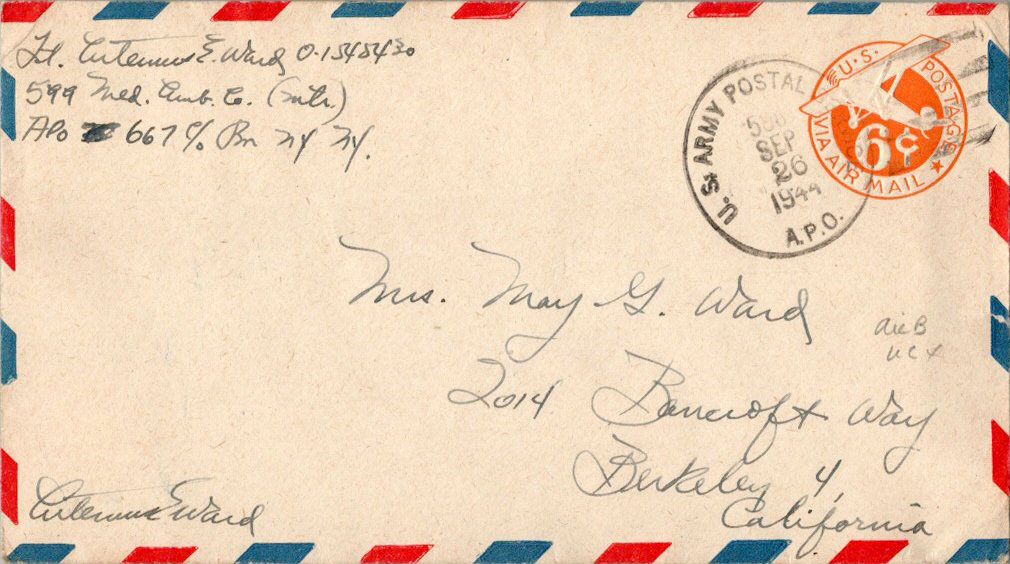 Lt. Artemus E. Ward O-1545430
599 Med. Amb. Co. (Mtr.)
APO 667 c/o Pm NY NY.
U.S. ARMY POSTAL
SEP
26
1944
A.P.O.
U.S. POSTAGE
6¢
VIA AIR MAIL
Mrs. May G. Ward
2014 Bancroft Way
Berkeley 4,
California
Artemus E Ward